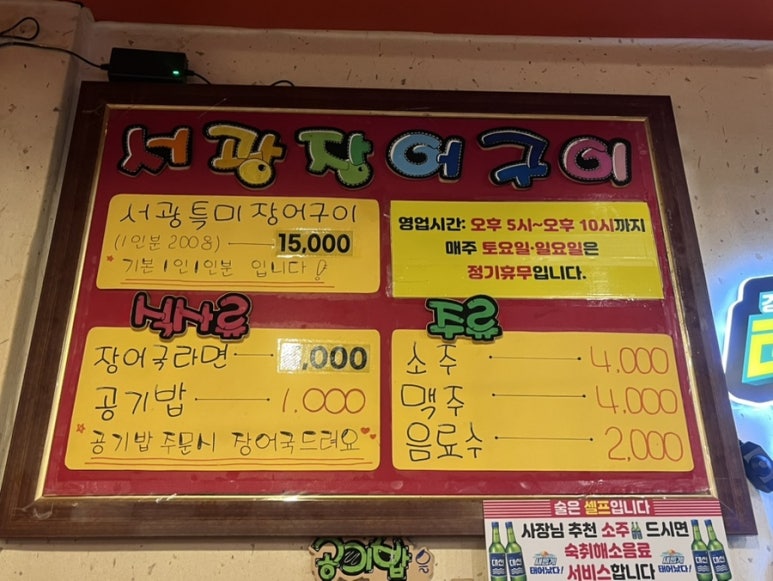 서광장어구이
서광특미 장어구이
(1인분 200g) 15,000
*기본 1인 1인분 입니다!
영업시간: 오후 5시~오후 10시까지
매주 토요일·일요일은
정기휴무입니다.
식사류
장어국라면 ,000
공기밥 1,000
공기밥 주문시 장어국드려요
주류
소주 4,000
맥주 4,000
음료수 2,000
술은 셀프입니다
사장님 추천 소주 드시면
숙취해소음료
서비스합니다
새롭게
태어났다!
새롭게
태어났다!
대선
대선
대선
대선
공기밥